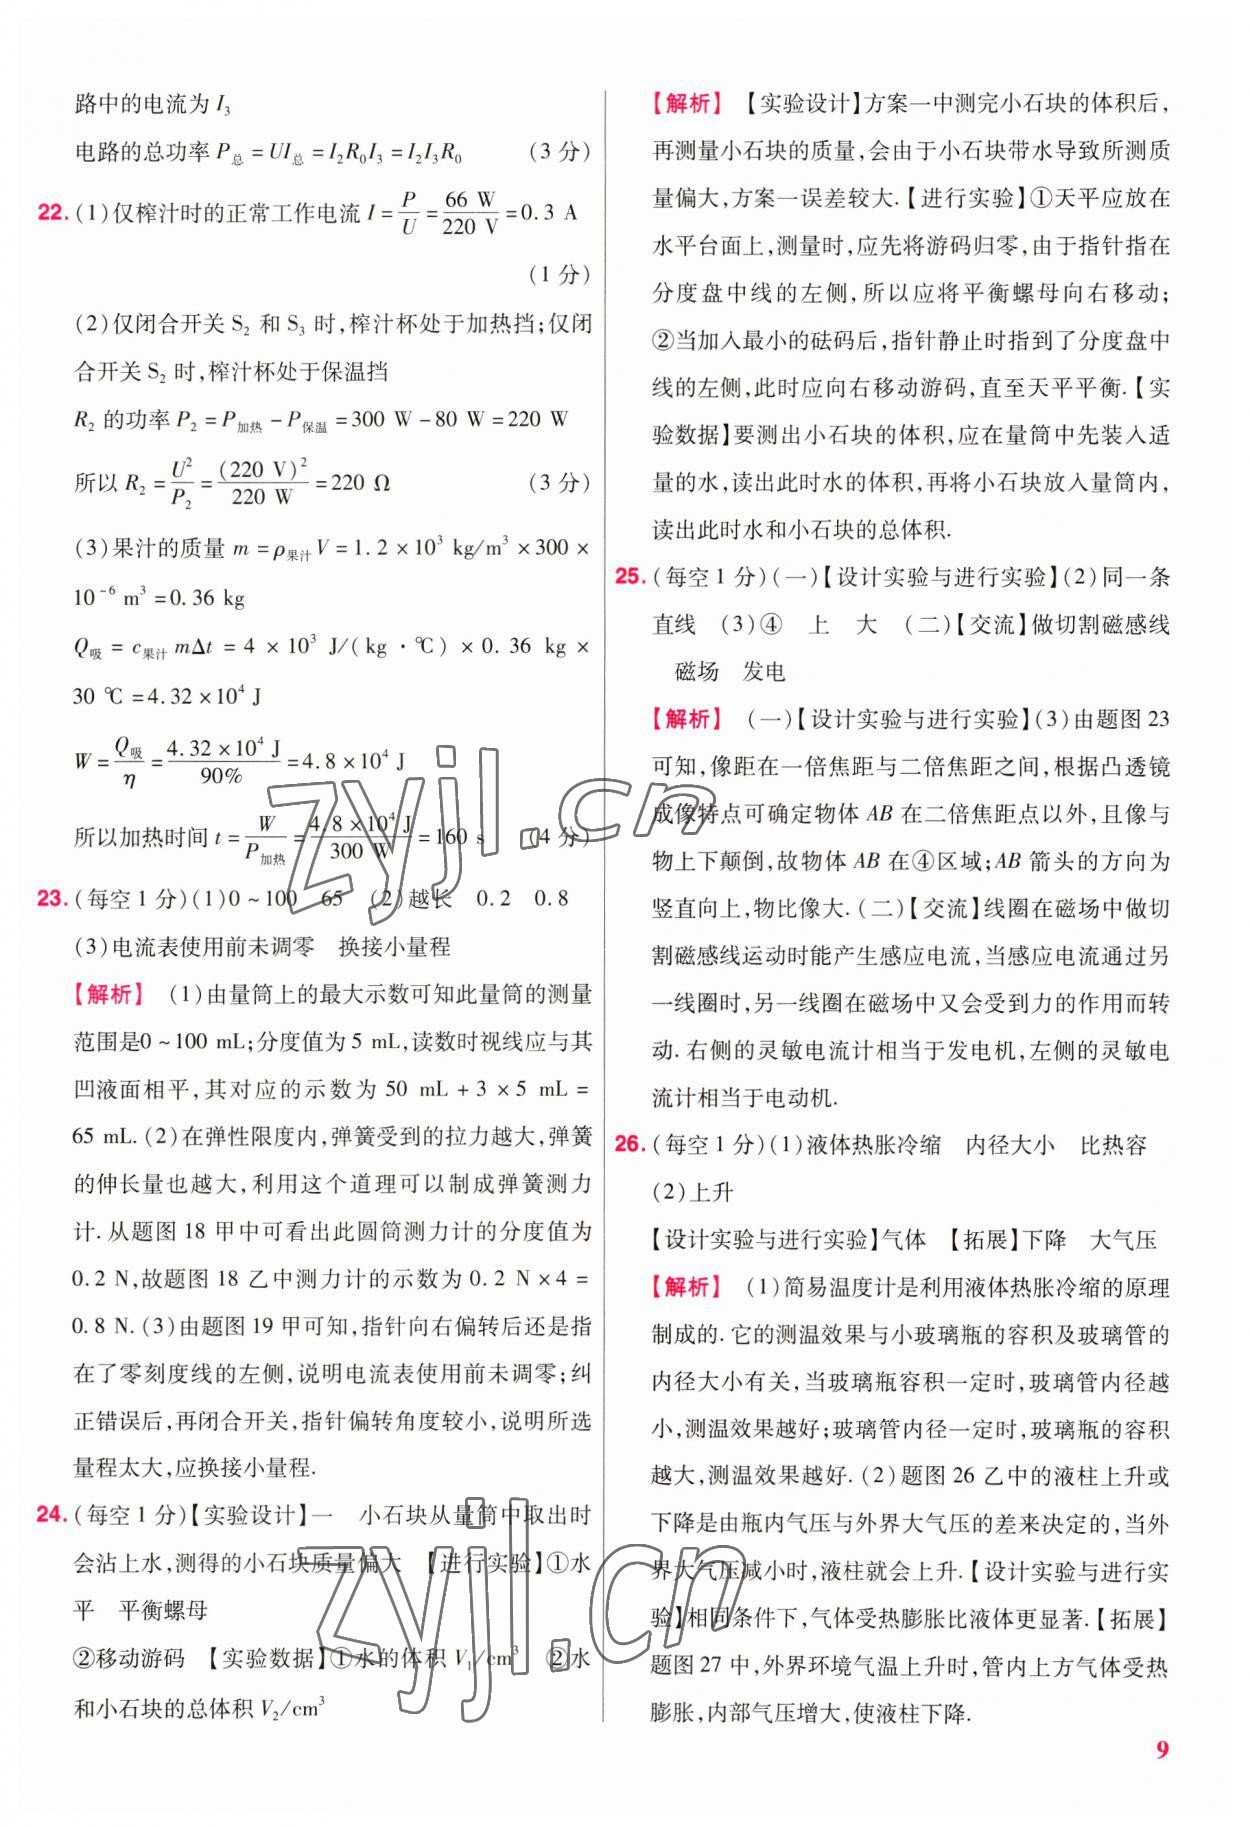 路中的电流为 I₃
电路的总功率 P总 = UI总 = I₂R₀I₃ = I₂I₃R₀ (3 分)
22. (1)仅榨汁时的正常工作电流 I = P/U = 66 W/220 V = 0.3 A
(1 分)
(2)仅闭合开关 S₂ 和 S₃ 时,榨汁杯处于加热挡;仅闭
合开关 S₂ 时,榨汁杯处于保温挡
R₂ 的功率 P₂ = P加热 - P保温 = 300 W - 80 W = 220 W
所以 R₂ = U²/P₂ = (220 V)²/220 W = 220 Ω (3 分)
(3)果汁的质量 m = ρ果汁V = 1.2 × 10³ kg/m³ × 300 ×
10⁻⁶ m³ = 0.36 kg
Q吸 = c果汁 mΔt = 4 × 10³ J/(kg · ℃) × 0.36 kg ×
30 ℃ = 4.32 × 10⁴ J
W = Q吸/η = 4.32 × 10⁴ J/90% = 4.8 × 10⁴ J
所以加热时间 t = W/P加热 = 4.8 × 10⁴ J/300 W = 160 s (4 分)
23. (每空 1 分)(1)0 ~ 100 65 (2)越长 0.2 0.8
(3)电流表使用前未调零 换接小量程
【解析】 (1)由量筒上的最大示数可知此量筒的测量
范围是0 ~ 100 mL;分度值为 5 mL,读数时视线应与其
凹液面相平,其对应的示数为 50 mL + 3 × 5 mL =
65 mL. (2)在弹性限度内,弹簧受到的拉力越大,弹簧
的伸长量也越大,利用这个道理可以制成弹簧测力
计. 从题图 18 甲中可看出此圆筒测力计的分度值为
0.2 N,故题图 18 乙中测力计的示数为 0.2 N × 4 =
0.8 N. (3)由题图 19 甲可知,指针向右偏转后还是指
在了零刻度线的左侧,说明电流表使用前未调零;纠
正错误后,再闭合开关,指针偏转角度较小,说明所选
量程太大,应换接小量程.
24. (每空 1 分)【实验设计】一 小石块从量筒中取出时
会沾上水,测得的小石块质量偏大 【进行实验】①水
平 平衡螺母
②移动游码 【实验数据】①水的体积 V₁/cm³ ②水
和小石块的总体积 V₂/cm³
【解析】 【实验设计】方案一中测完小石块的体积后,
再测量小石块的质量,会由于小石块带水导致所测质
量偏大,方案一误差较大.【进行实验】①天平应放在
水平台面上,测量时,应先将游码归零,由于指针指在
分度盘中线的左侧,所以应将平衡螺母向右移动;
②当加入最小的砝码后,指针静止时指到了分度盘中
线的左侧,此时应向右移动游码,直至天平平衡.【实
验数据】要测出小石块的体积,应在量筒中先装入适
量的水,读出此时水的体积,再将小石块放入量筒内,
读出此时水和小石块的总体积.
25. (每空 1 分)(一)【设计实验与进行实验】(2)同一条
直线 (3)④ 上 大 (二)【交流】做切割磁感线
磁场 发电
【解析】 (一)【设计实验与进行实验】(3)由题图 23
可知,像距在一倍焦距与二倍焦距之间,根据凸透镜
成像特点可确定物体 AB 在二倍焦距点以外,且像与
物上下颠倒,故物体 AB 在④区域;AB 箭头的方向为
竖直向上,物比像大. (二)【交流】线圈在磁场中做切
割磁感线运动时能产生感应电流,当感应电流通过另
一线圈时,另一线圈在磁场中又会受到力的作用而转
动. 右侧的灵敏电流计相当于发电机,左侧的灵敏电
流计相当于电动机.
26. (每空 1 分)(1)液体热胀冷缩 内径大小 比热容
(2)上升
【设计实验与进行实验】气体 【拓展】下降 大气压
【解析】 (1)简易温度计是利用液体热胀冷缩的原理
制成的. 它的测温效果与小玻璃瓶的容积及玻璃管的
内径大小有关,当玻璃瓶容积一定时,玻璃管内径越
小,测温效果越好;玻璃管内径一定时,玻璃瓶的容积
越大,测温效果越好. (2)题图 26 乙中的液柱上升或
下降是由瓶内气压与外界大气压的差来决定的,当外
界大气压减小时,液柱就会上升.【设计实验与进行实
验】相同条件下,气体受热膨胀比液体更显著.【拓展】
题图 27 中,外界环境气温上升时,管内上方气体受热
膨胀,内部气压增大,使液柱下降.
9
zyjl.cn
zyjl.cn